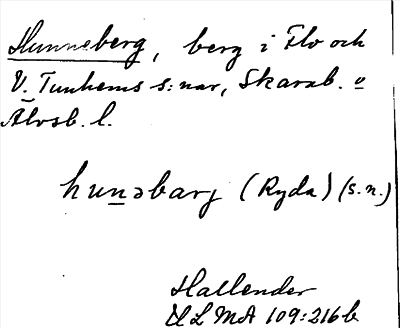 Hunneberg, berg i Flo och
V. Tunhems s:nar, Skarab. o
Älvsb. l.
hunəbarj (Ryda) (s.n.)
Hallender
ULMA 109:216 b